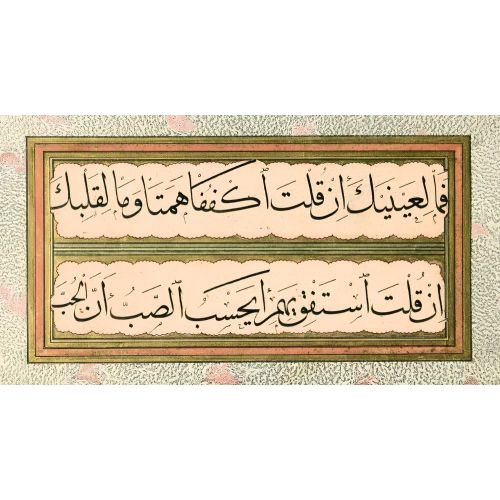 فما لعينيك ان قلت اكففا همتا وما لقلبك
ان قلت استفق يهم ايحسب الصب ان الحب